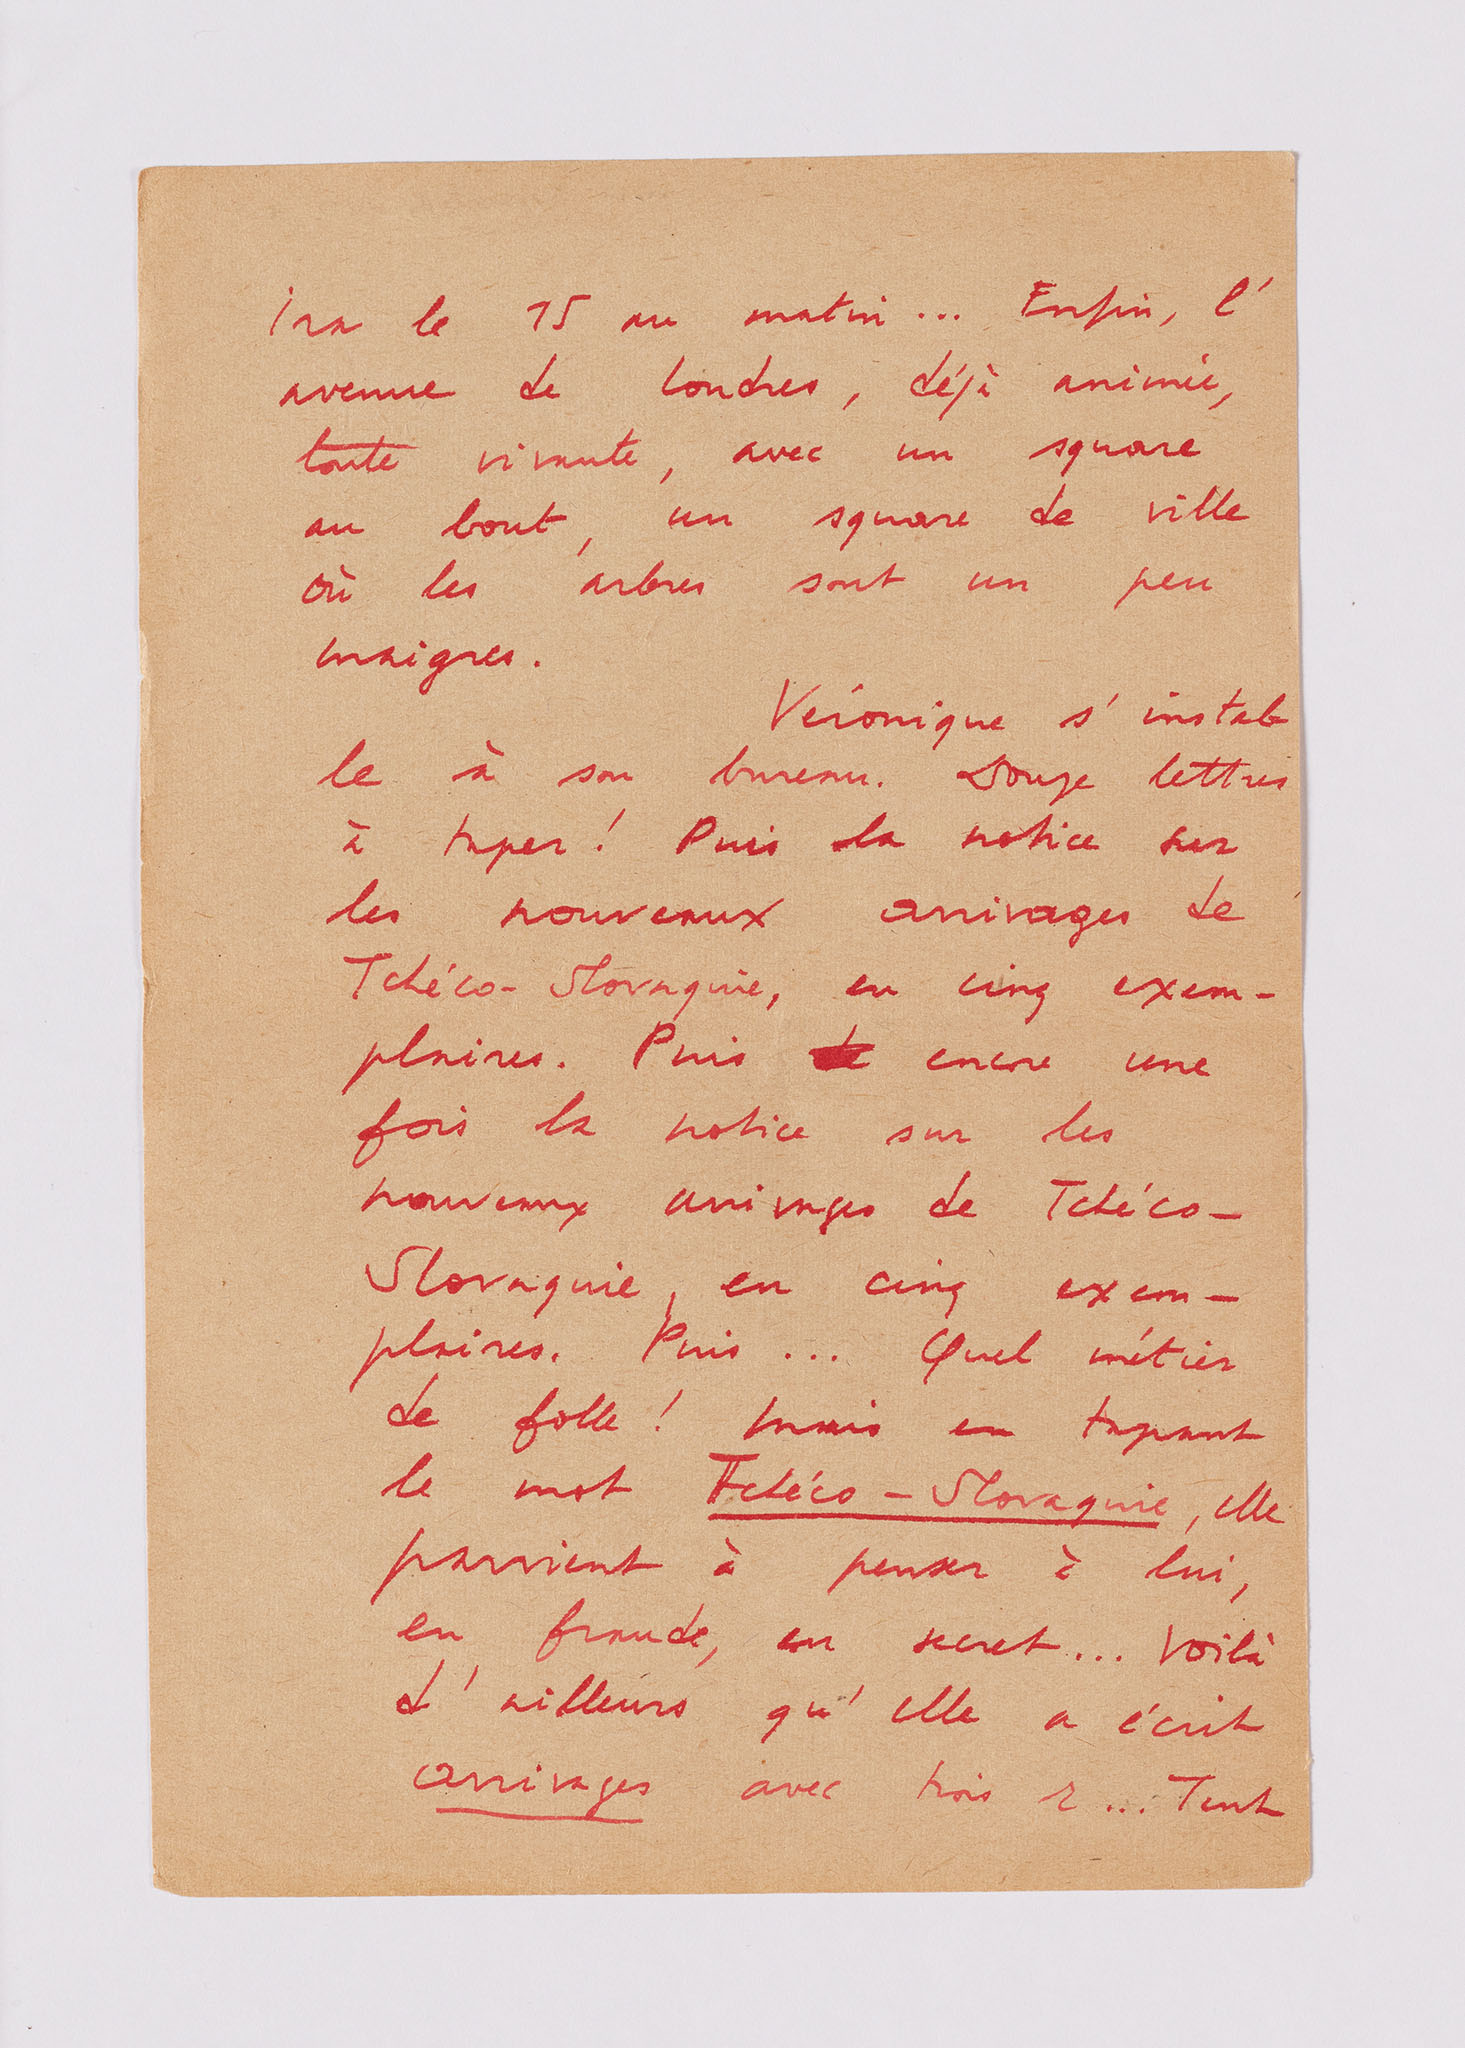 ira le 15 au matin... Enfin, l'
avenue de Londres, déjà animée,
toute vivante, avec un square
au bout, un square de ville
où les arbres sont un peu
maigres.
Véronique s'instal-
le à son bureau. Douze lettres
à taper! Puis la notice sur
les nouveaux arrivages de
Tchéco-Slovaquie, en cinq exem-
plaires. Puis encore une
fois la notice sur les
nouveaux arrivages de Tchéco-
Slovaquie, en cinq exem-
plaires. Puis... Quel métier
de folle! Mais en tapant
le mot Tchéco-Slovaquie, elle
parvient à penser à lui,
en fraude, en secret... Voilà
d'ailleurs qu'elle a écrit
arrivages avec trois r... Tant